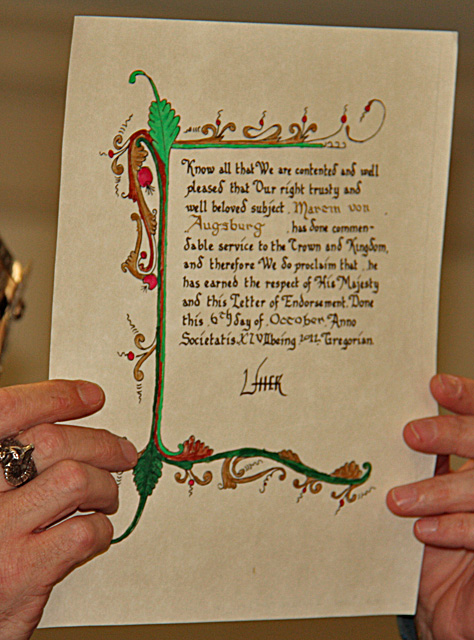 Know all that We are contented and well
pleased that Our right trusty and
well beloved subject Marcin von
Augsburg has done commen-
dable service to the Crown and Kingdom,
and therefore We do proclaim that he
has earned the respect of His Majesty
and this Letter of Endorsement. Done
this 6th day of October Anno
Societatis XLVII being 2012 Gregorian.